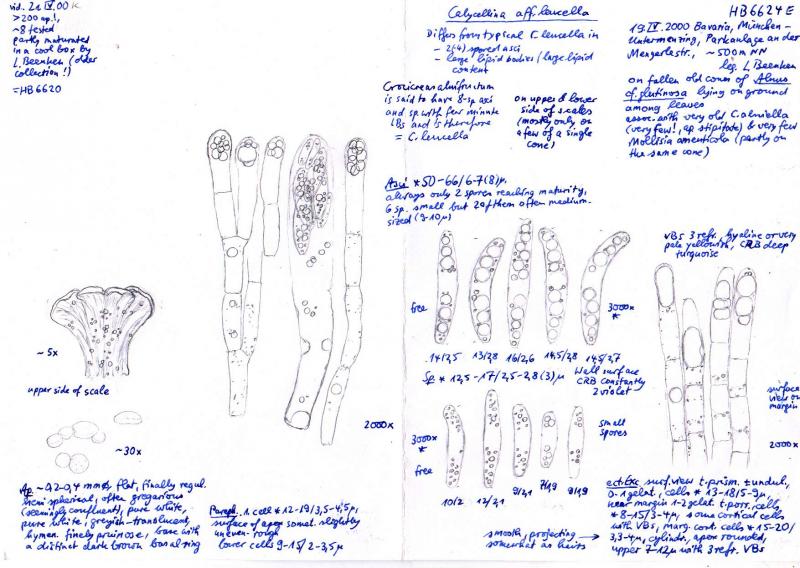 vid. 21.IV.00 K
> 200 ap.!,
~8 tested
partly maturated
in a cool box by
L. Beenken (older
collection!)
= HB6620
Calycellina aff. leucella
Differs from typical C. leucella in
- 2(4) spored asci
- large lipid bodies (large lipid
content)
Crocicreas alnifructum
is said to have 8-sp asci
and sp. with few minute
LBs and is therefore
= C. leucella
on upper & lower
side of scales
(mostly only on
a few of a single
cone)
HB6624E
19.IV.2000 Bavaria, München-
Untermenzing, Parkanlage an der
Mengerlestr., ~500m NN
leg. L. Beenken
on fallen old cones of Alnus
cf. glutinosa lying on ground
among leaves
assoc. with very old C. alniella
(very few!, ap. stipitate) & very few
Mollisia amenticola (partly on
the same cone)
Asci *50-66/6-7(8)µ,
always only 2 spores reaching maturity,
6 sp. small but 2 of them often medium-
sized (9-10µ)
VBs 3 refr., hyaline or very
pale yellowish, CRB deep
turquoise
free
3000x
*
14/2,5
13/2,8
16/2,6
14,5/2,8
14,5/2,7
Sp *12,5-17/2,5-2,8(3)µ
Wall surface
CRB constantly
violet
~5x
upper side of scale
2000x
surface
view on
margin
2000x
~30x
3000x
*
free
small
spores
10/2
12/2,1
9/2,1
7/1,9
8/1,9
Ap. ~0,2-0,4 mm ø, flat, finally regul.
hemispherical, often gregarious
(seemingly confluent), pure white,
pure white, greyish-translucent,
hymen. finely pruinose, base with
a distinct dark brown basal ring
Paraph. 1. cell *12-19/3,5-4,5µ,
surface of apex somet. slightly
uneven-rough
lower cells 9-15/2-3,5µ
smooth, projecting
somewhat as hairs
ect. Exc. surf. view t. prism. ± undul.,
0-1 gelat., cells *13-18/5-9µ,
near margin 1-2 gelat. t. porr., cells
*8-15/3-4µ, some cortical cells
with VBs, marg. cort. cells *15-20/
3,3-4µ, cylindr., apex rounded,
upper 7-12µ with 3 refr. VBs